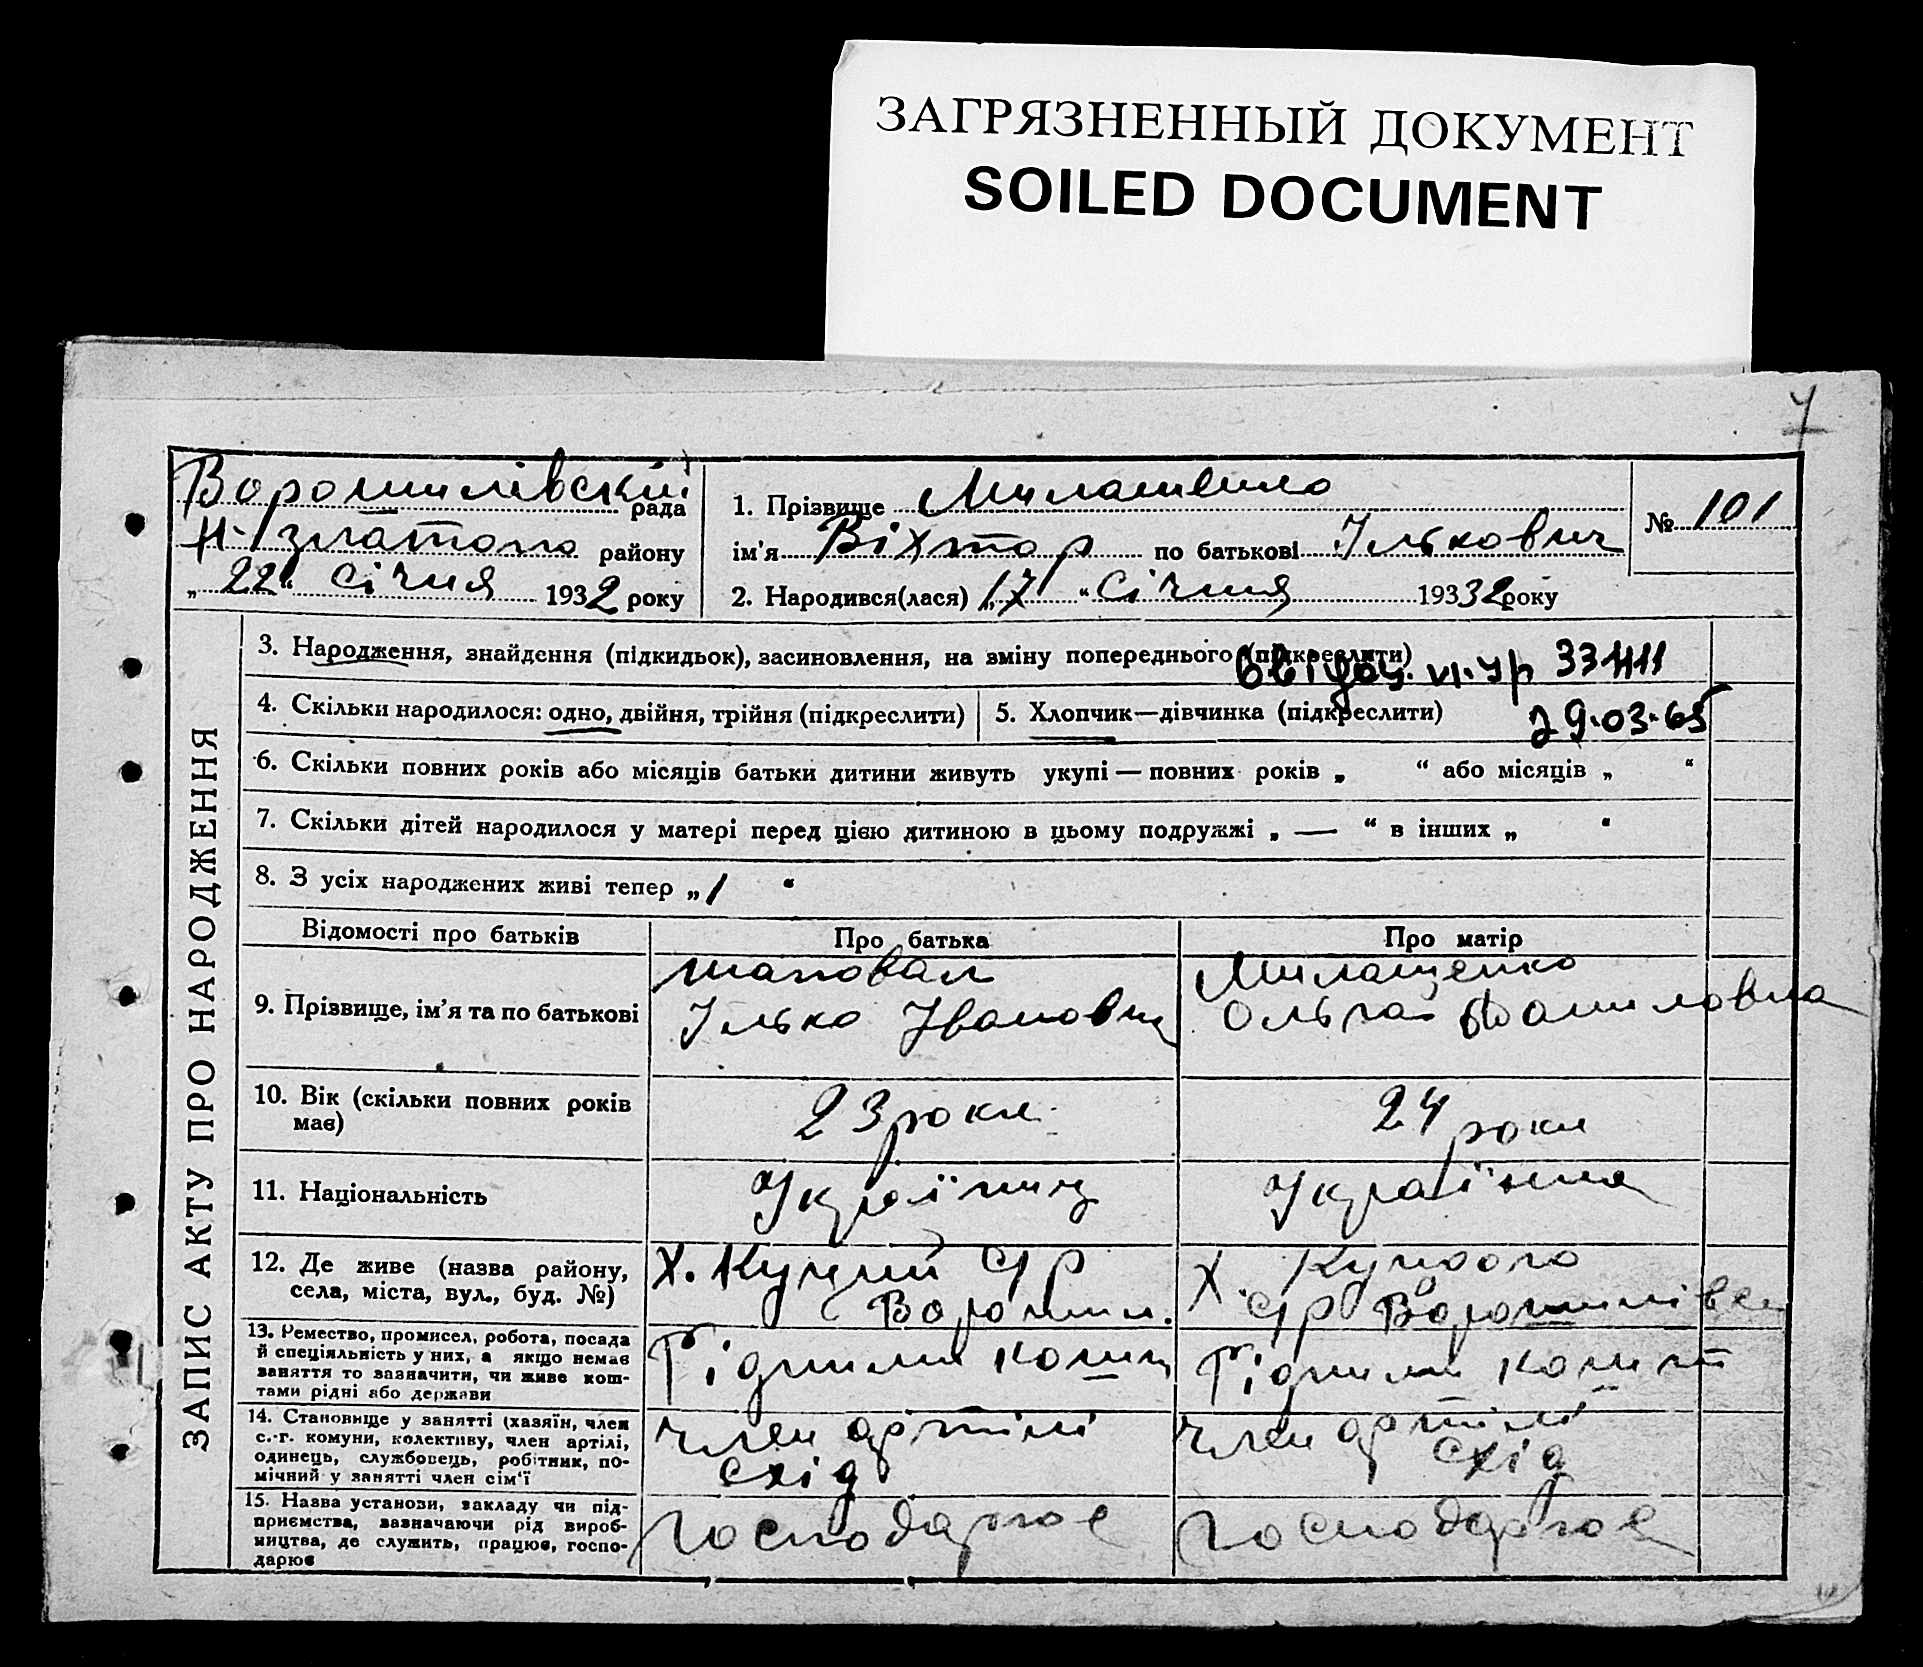 ЗАГРЯЗНЕННЫЙ ДОКУМЕНТ
SOILED DOCUMENT
Ворошилівский рада
Н-Златопо району
„ 22 “ Січня 1932 року
1. Прізвище Милашенко
ім'я Віхтор по батькові Ількович
2. Народився(лася) „17“ Січня 19332 року
№ 101
ЗАПИС АКТУ ПРО НАРОДЖЕННЯ
3. Народження, знайдення (підкидьок), засиновлення, на зміну попереднього (підкреслити)
331411
4. Скільки народилося: одно, двійня, трійня (підкреслити)
5. Хлопчик—дівчинка (підкреслити)
29.03.65
6. Скільки повних років або місяців батьки дитини живуть укупі — повних років „ “ або місяців „ “
7. Скільки дітей народилося у матері перед цією дитиною в цьому подружжі „ — “ в інших „ “
8. З усіх народжених живі тепер „ 1 “
Відомості про батьків
Про батька
Про матір
9. Прізвище, ім'я та по батькові
Шаповал
Ілько Іванович
Милащенко
Ольга Даниловна
10. Вік (скільки повних років
має)
23 роки
24 роки
11. Національність
Українц
Українка
12. Де живе (назва району,
села, міста, вул., буд. №)
Х. Куций с/р
Ворошил.
Х.
с/р Ворошилівен
13. Ремество, промисел, робота, посада
й спеціяльність у них, а якщо немає
заняття то зазначити, чи живе кош-
тами рідні або держави
Рідними кошт
Рідними кошт
14. Становище у занятті (хазяїн, член
с.-г. комуни, колективу, член артілі,
одинець, службовець, робітник, по-
мічний у занятті член сім'ї
член артілі
схід
член артілі
схід
15. Назва установи, закладу чи під-
приємства, зазначаючи рід вироб-
ництва, де служить, працює, госпо-
дарює
господарює
господарює